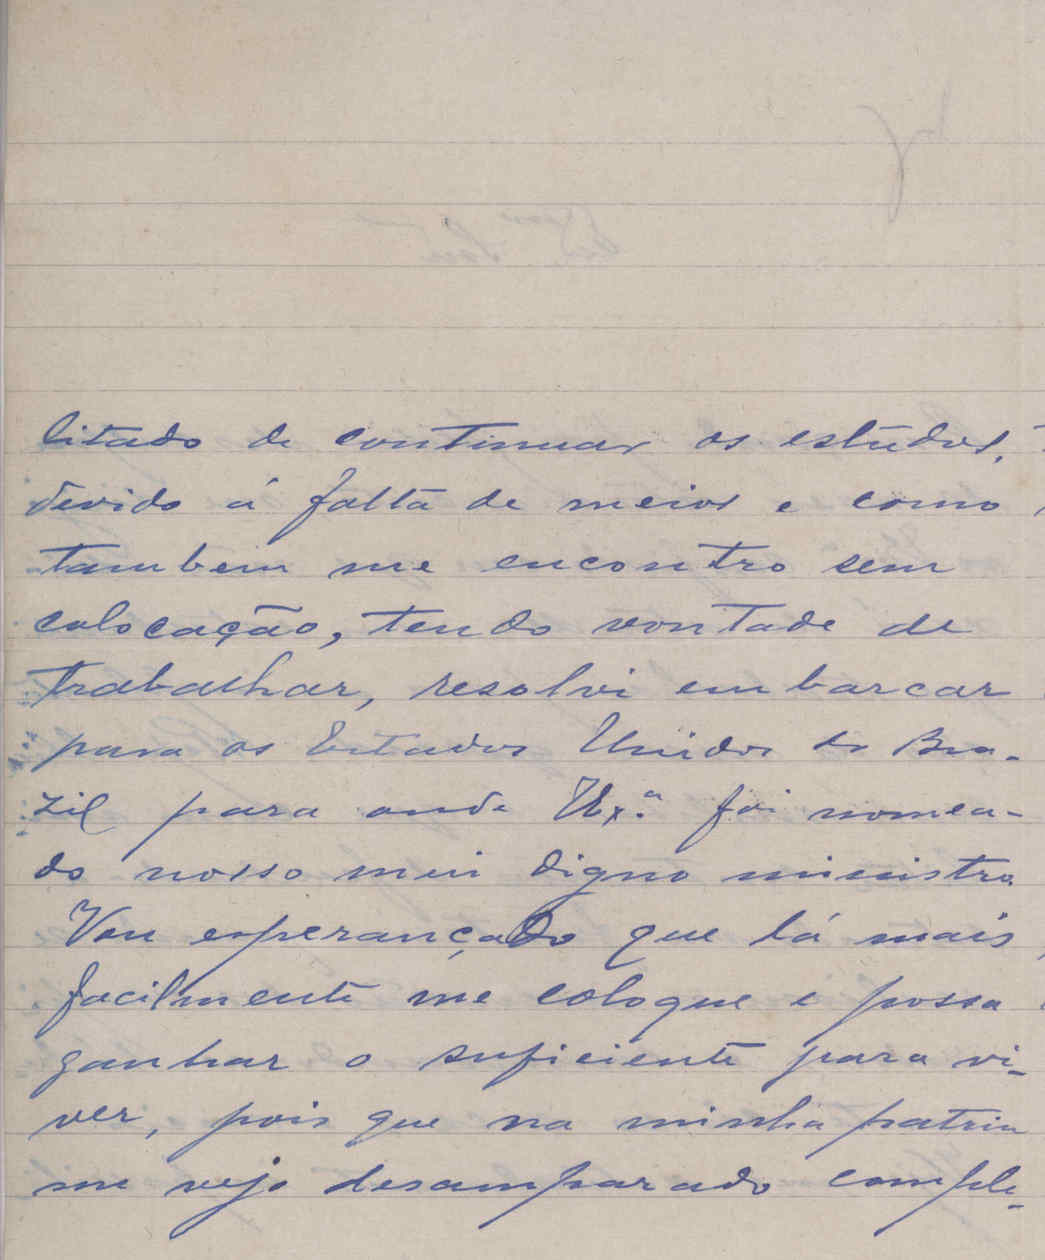 litado de continuar os estudos,
devido á falta de meios e como
tambem me encontro sem
colocação, tendo vontade de
trabalhar, resolvi embarcar
para os Estados Unidos do Bra-
zil para onde V.Ex.ª foi nomea-
do nosso mui digno ministro
Vou esperançado que lá mais
facilmente me coloque e possa
ganhar o suficiente para vi-
ver, pois que na minha patria
me vejo desamparado comple-